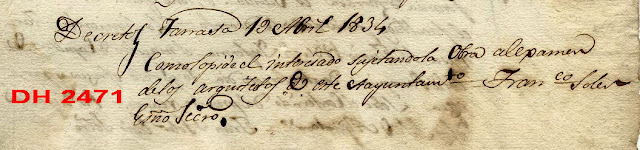 Decreto Tarrasa 19 Abril 1834
Como lo pide el interesado sujetando la Obra al examen
DH 2471
de los arquitectos de este Ayuntam.to Fran.co Soler
Esño Secrò.